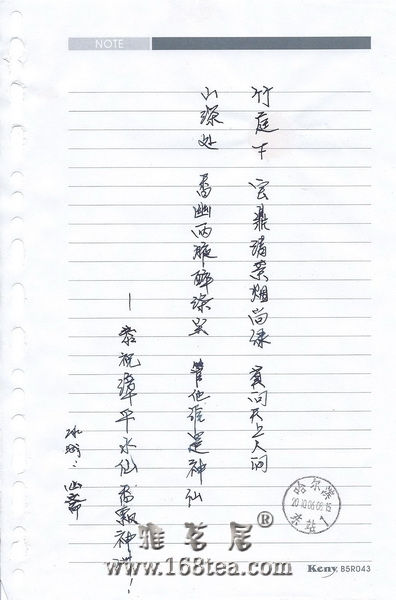 NOTE
竹庭下 宝鼎清茶烟尚绿 莫问天上人间
山深处 香幽两腋醉 管他谁是神仙
—恭祝漳平水仙香飘神洲！
冰城：幽斋
哈尔滨
2010.06.08.15
雅茗居®
www.168tea.com
Keny B5R043